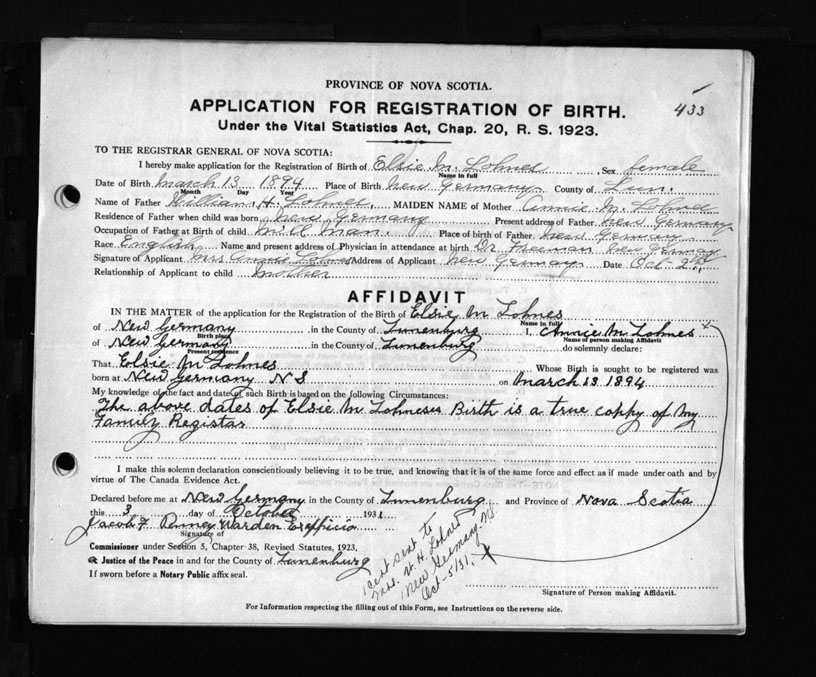 PROVINCE OF NOVA SCOTIA.
433
APPLICATION FOR REGISTRATION OF BIRTH.
Under the Vital Statistics Act, Chap. 20, R. S. 1923.
TO THE REGISTRAR GENERAL OF NOVA SCOTIA:
I hereby make application for the Registration of Birth of Elsie M. Lohnes, Sex female
Name in full
Date of Birth March 13 1894 Place of Birth New Germany County of Lun.
Month Day Year
Name of Father William H. Lohnes MAIDEN NAME of Mother Annie M. Lohnes
Residence of Father when child was born New Germany Present address of Father New Germany
Occupation of Father at Birth of child Mill Man. Place of birth of Father New Germany
Race English Name and present address of Physician in attendance at birth Dr. Freeman New Germany
Signature of Applicant Mrs Annie Lohnes Address of Applicant New Germany Date Oct 2nd
Relationship of Applicant to child Mother
AFFIDAVIT
IN THE MATTER of the application for the Registration of the Birth of Elsie M Lohnes
Name in full
of New Germany, in the County of Lunenburg I, Annie M. Lohnes x
Birth place
Name of person making Affidavit
of New Germany, in the County of Lunenburg do solemnly declare:
Present residence
That Elsie M Lohnes Whose Birth is sought to be registered was
born at New Germany N S on March 13 1894
My knowledge of the fact and date of such Birth is based on the following Circumstances:
The above dates of Elsie M Lohneses Birth is a true copy of My
Family Registar
I make this solemn declaration conscientiously believing it to be true, and knowing that it is of the same force and effect as if made under oath and by
virtue of The Canada Evidence Act.
Declared before me at New Germany in the County of Lunenburg and Province of Nova Scotia
this 3 day of October 1931
Jacob F Penney Warden Exofficio
Signature of
Commissioner under Section 5, Chapter 38, Revised Statutes, 1923,
Justice of the Peace in and for the County of Lunenburg
If sworn before a Notary Public affix seal.
1 cert sent to
Mrs. W. H. Lohnes
New Germany NS
Oct-5/31. x
Signature of Person making Affidavit.
For Information respecting the filling out of this Form, see Instructions on the reverse side.